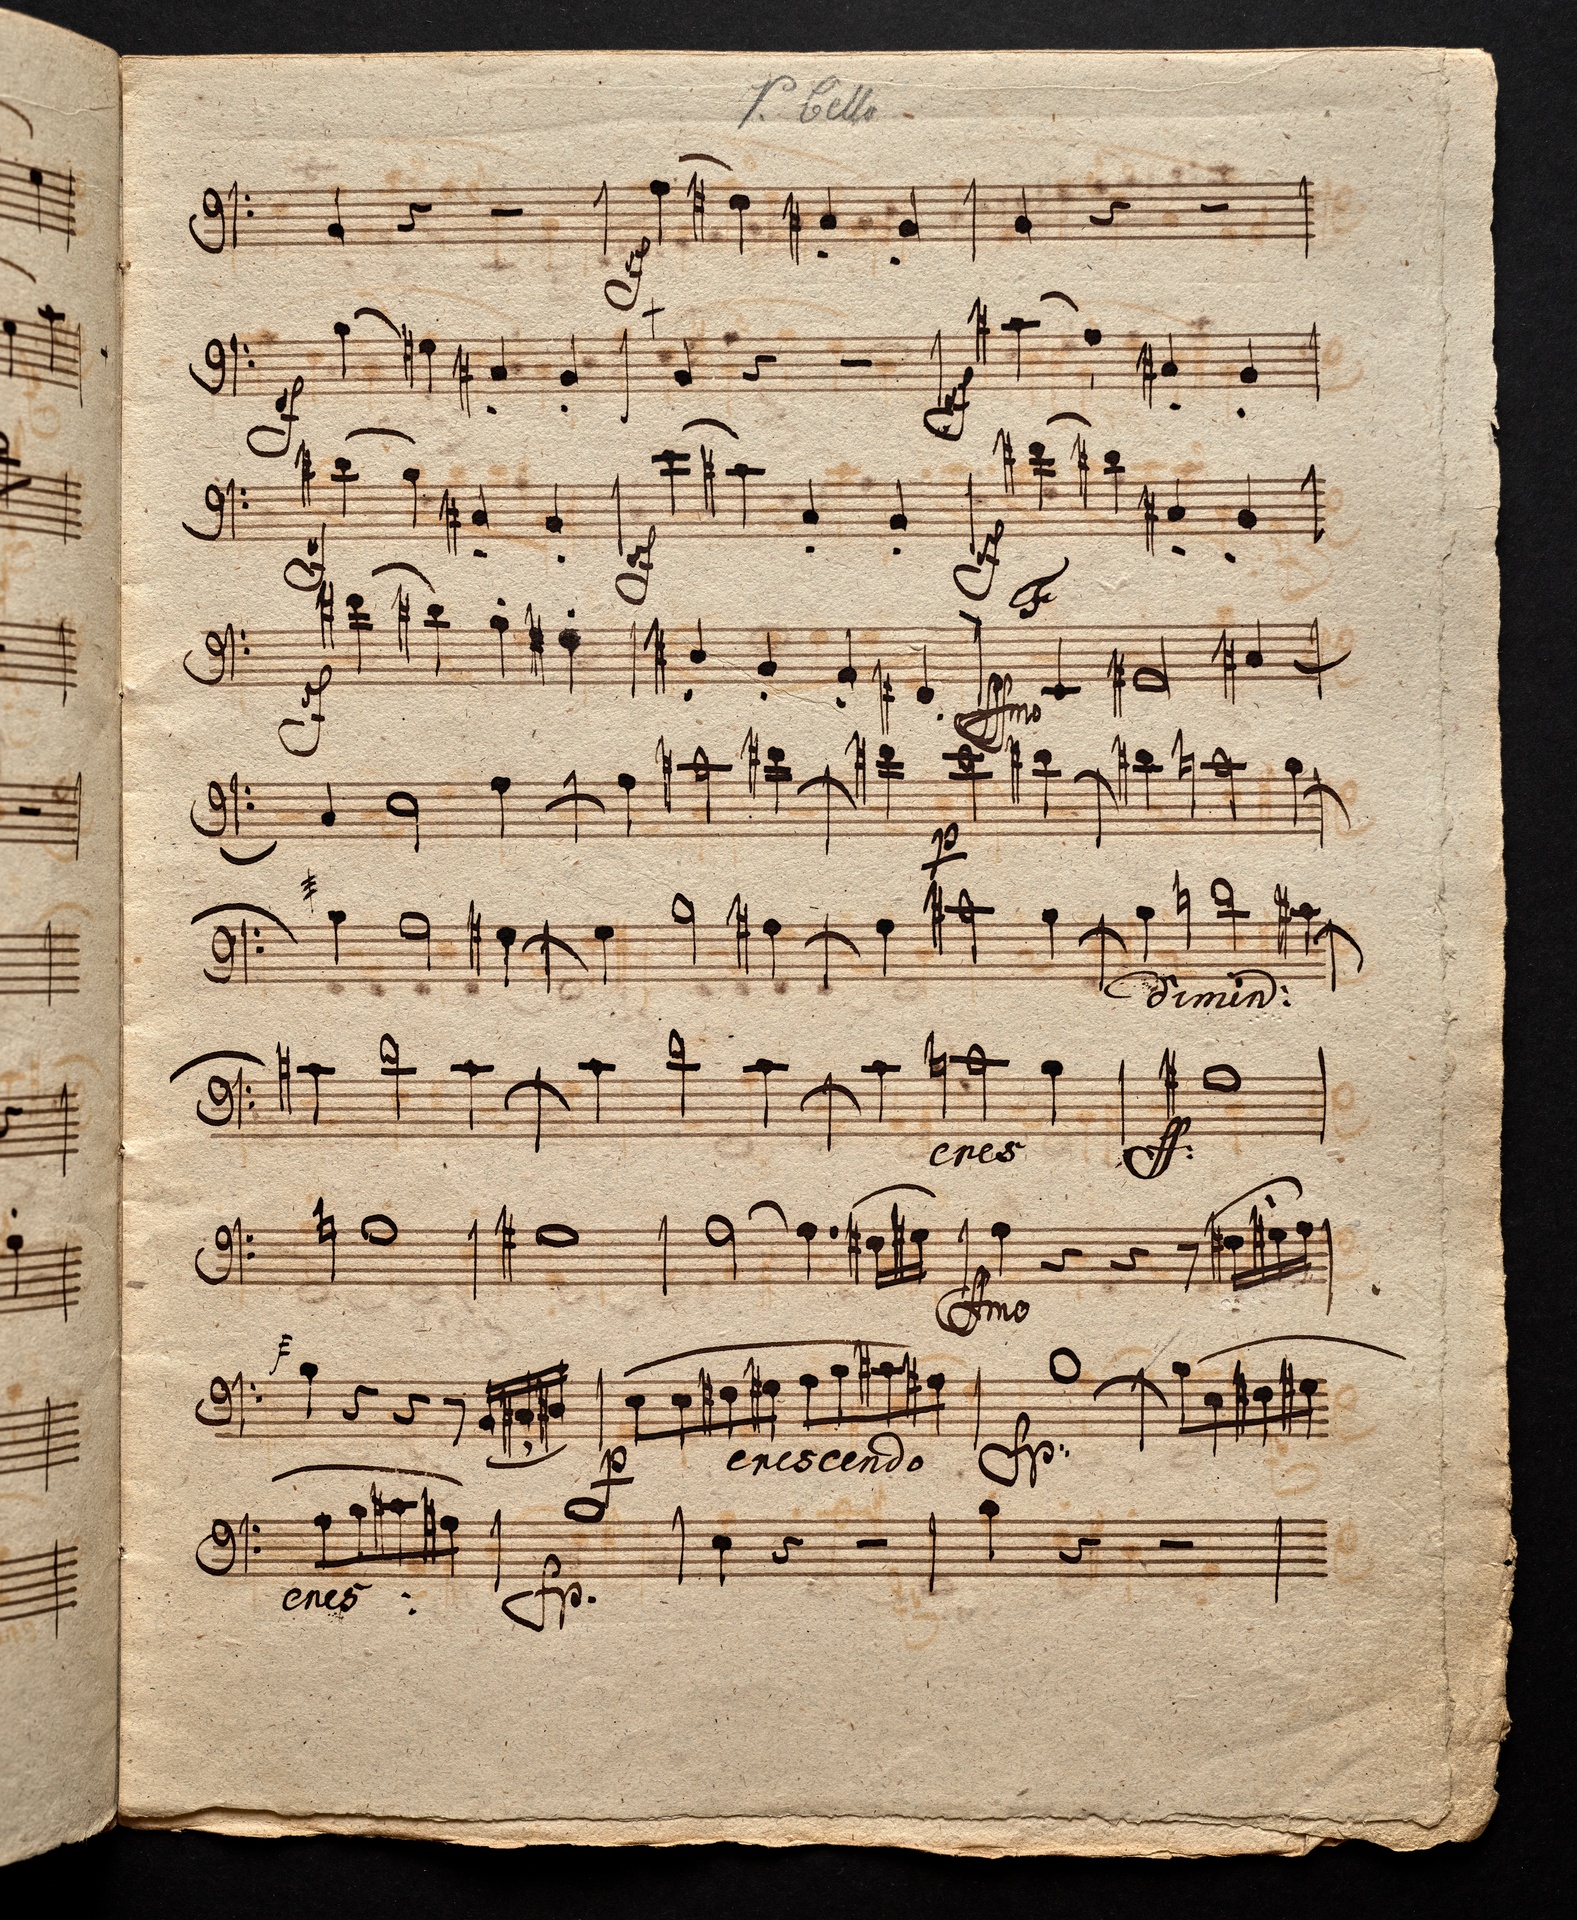 V. Cello
sf
sf sf
sf sf sf
F
sf ffmo
p
dimin:
cres ff:
ffmo
p crescendo fp:
cres: fp.